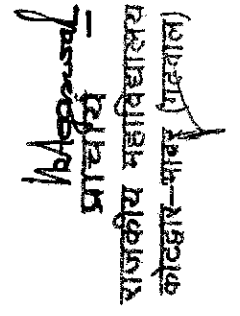 प्राचार्य
राजकीय महाविद्यालय
कोटद्वार–भाबर (गढ़वाल)